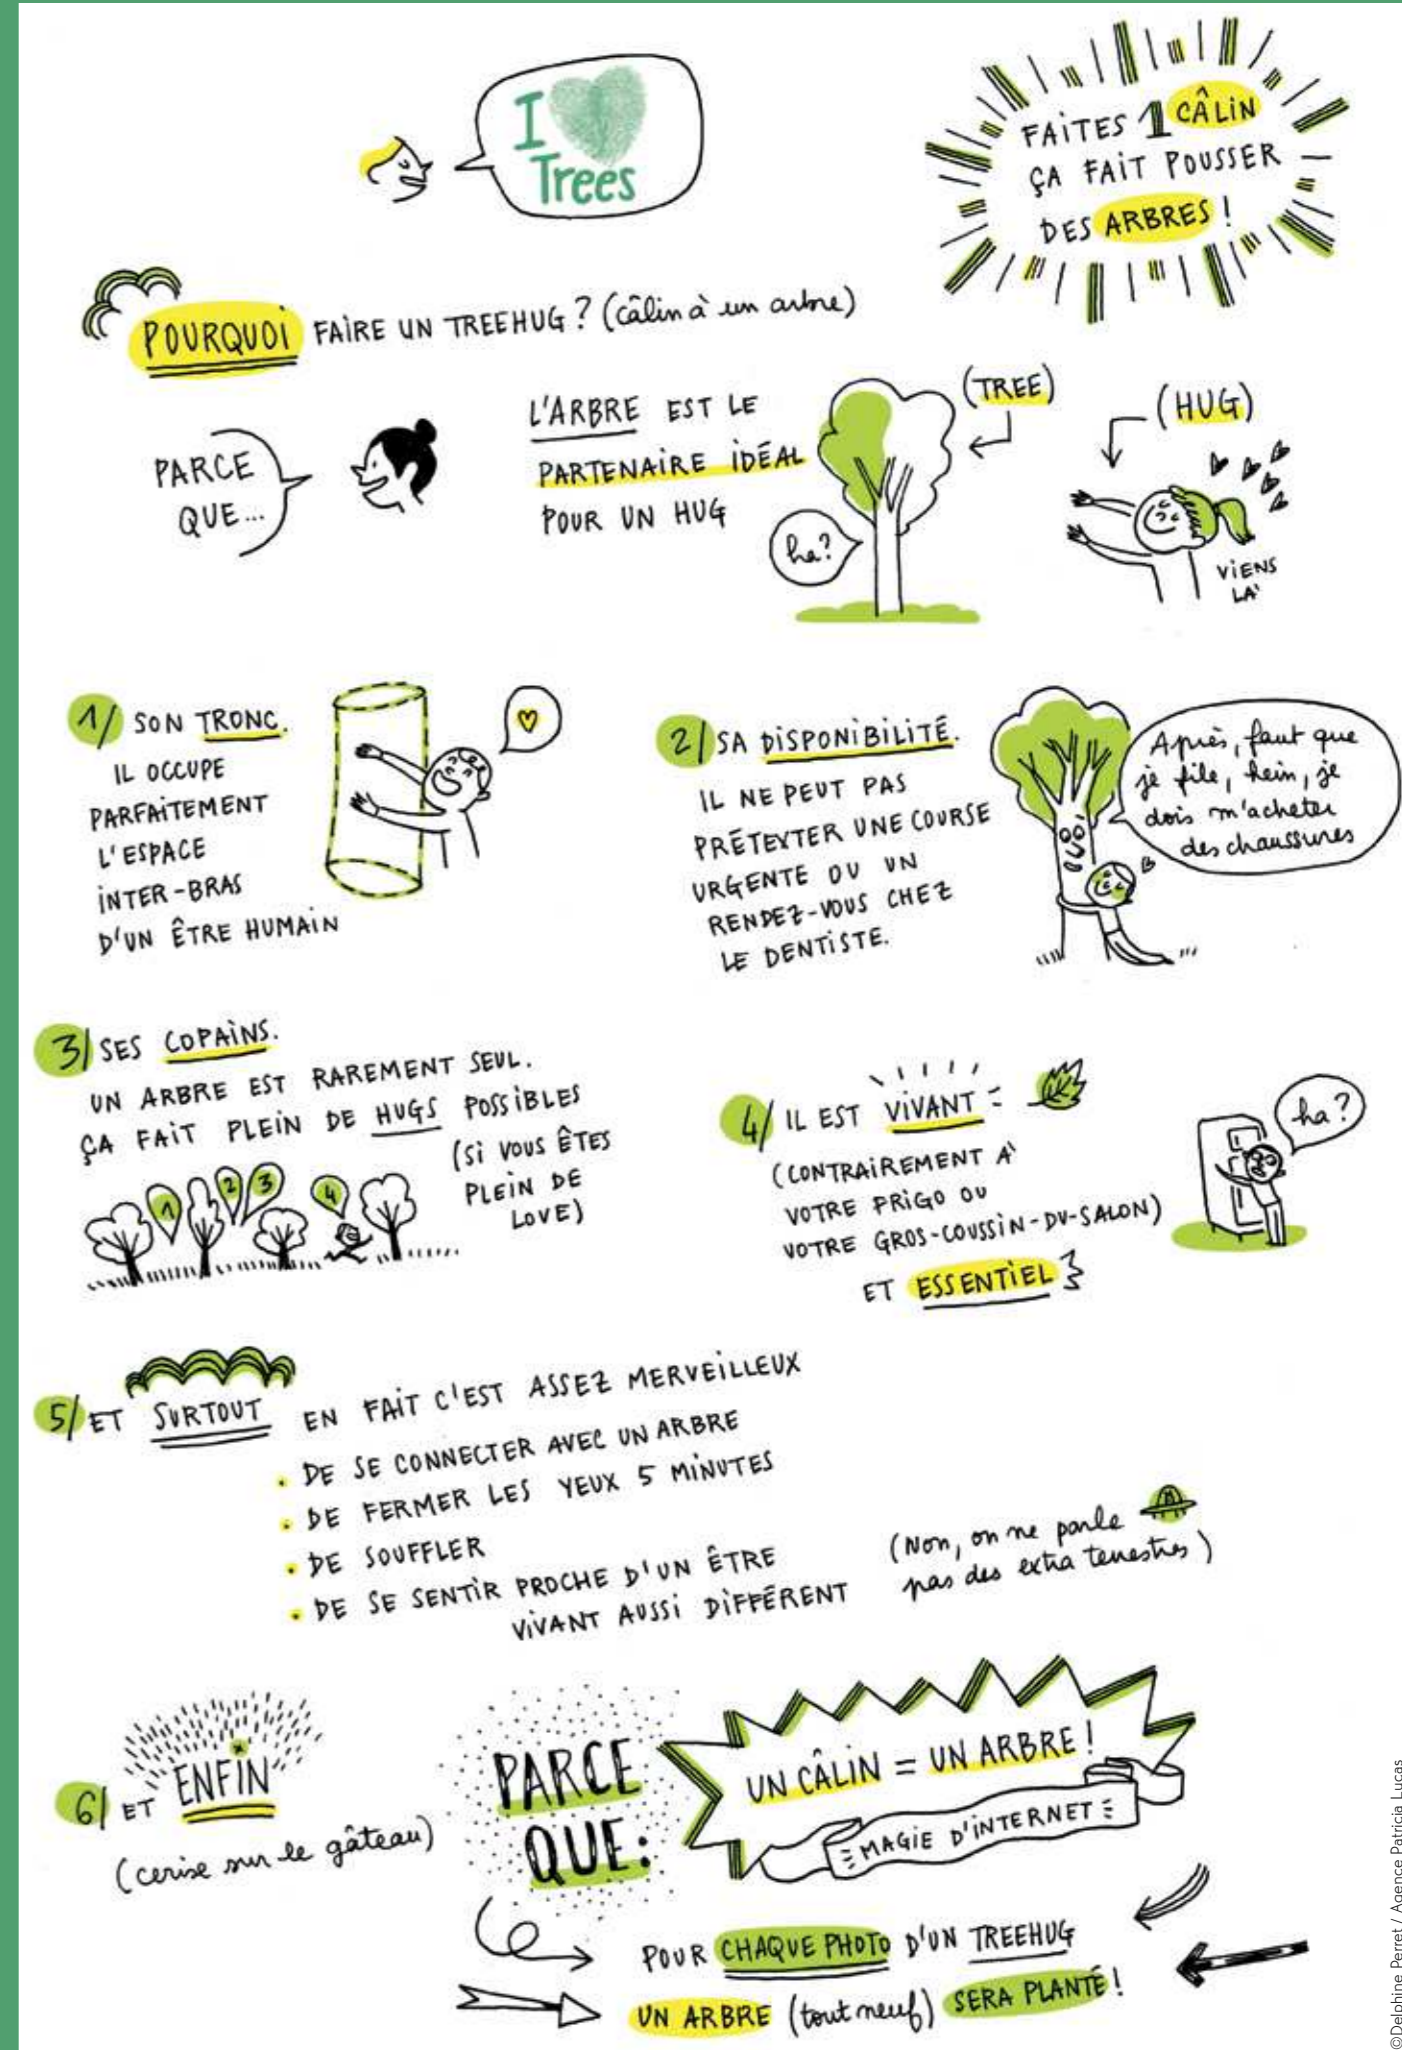 I
Trees
FAITES 1 CÂLIN
ÇA FAIT POUSSER
DES ARBRES !
POURQUOI FAIRE UN TREEHUG ? (câlin à un arbre)
PARCE
QUE...
L'ARBRE EST LE
PARTENAIRE IDÉAL
POUR UN HUG
ha?
(TREE)
(HUG)
VIENS
LÀ
1/ SON TRONC.
IL OCCUPE
PARFAITEMENT
L'ESPACE
INTER-BRAS
D'UN ÊTRE HUMAIN
2/ SA DISPONIBILITÉ.
IL NE PEUT PAS
PRÉTEXTER UNE COURSE
URGENTE OU UN
RENDEZ-VOUS CHEZ
LE DENTISTE.
Après, faut que
je file, hein, je
dois m'acheter
des chaussures
3/ SES COPAINS.
UN ARBRE EST RAREMENT SEUL.
ÇA FAIT PLEIN DE HUGS POSSIBLES
(SI VOUS ÊTES
PLEIN DE
LOVE)
1 2 3 4
4/ IL EST VIVANT
(CONTRAIREMENT À
VOTRE FRIGO OU
VOTRE GROS-COUSSIN-DU-SALON)
ET ESSENTIEL
ha?
5/ ET SURTOUT EN FAIT C'EST ASSEZ MERVEILLEUX
• DE SE CONNECTER AVEC UN ARBRE
• DE FERMER LES YEUX 5 MINUTES
• DE SOUFFLER
• DE SE SENTIR PROCHE D'UN ÊTRE
VIVANT AUSSI DIFFÉRENT
(Non, on ne parle
pas des extra terrestres)
6/ ET ENFIN
(cerise sur le gâteau)
PARCE
QUE:
UN CÂLIN = UN ARBRE !
MAGIE D'INTERNET
POUR CHAQUE PHOTO D'UN TREEHUG
UN ARBRE (tout neuf) SERA PLANTÉ !
©Delphine Perret / Agence Patricia Lucas